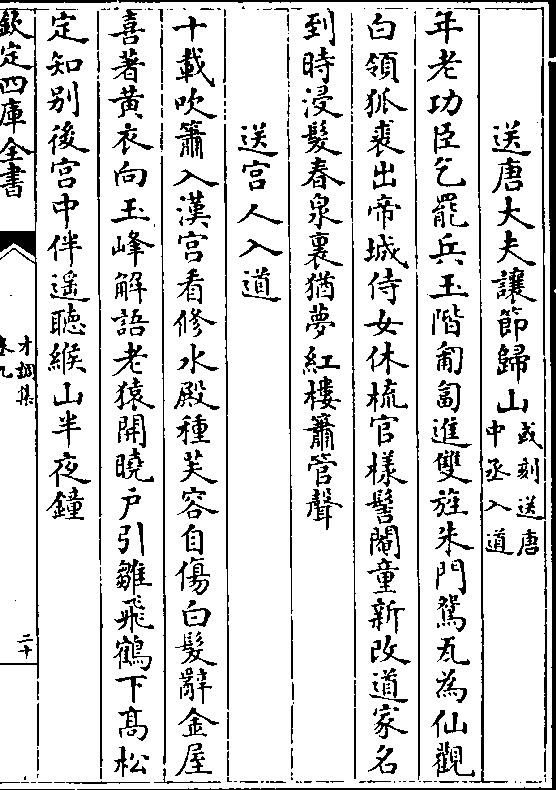 送唐大夫讓節歸山或刻送唐中丞入道
年老功臣乞罷兵玉階匍匐進雙旌朱門鴛瓦為仙觀
白領狐裘出帝城侍女休梳官様髻閹童新改道家名
到時浸髮春泉裏猶夢紅樓簫管聲
送宫人入道
十載吹簫入漢宫看修水殿種芙容自傷白髮辭金屋
喜著黄衣向玉峰解語老猿開曉户引雛飛鶴下髙松
定知别後宫中伴遥聽緱山半夜鐘
欽定四庫全書
才調集
卷九
二十